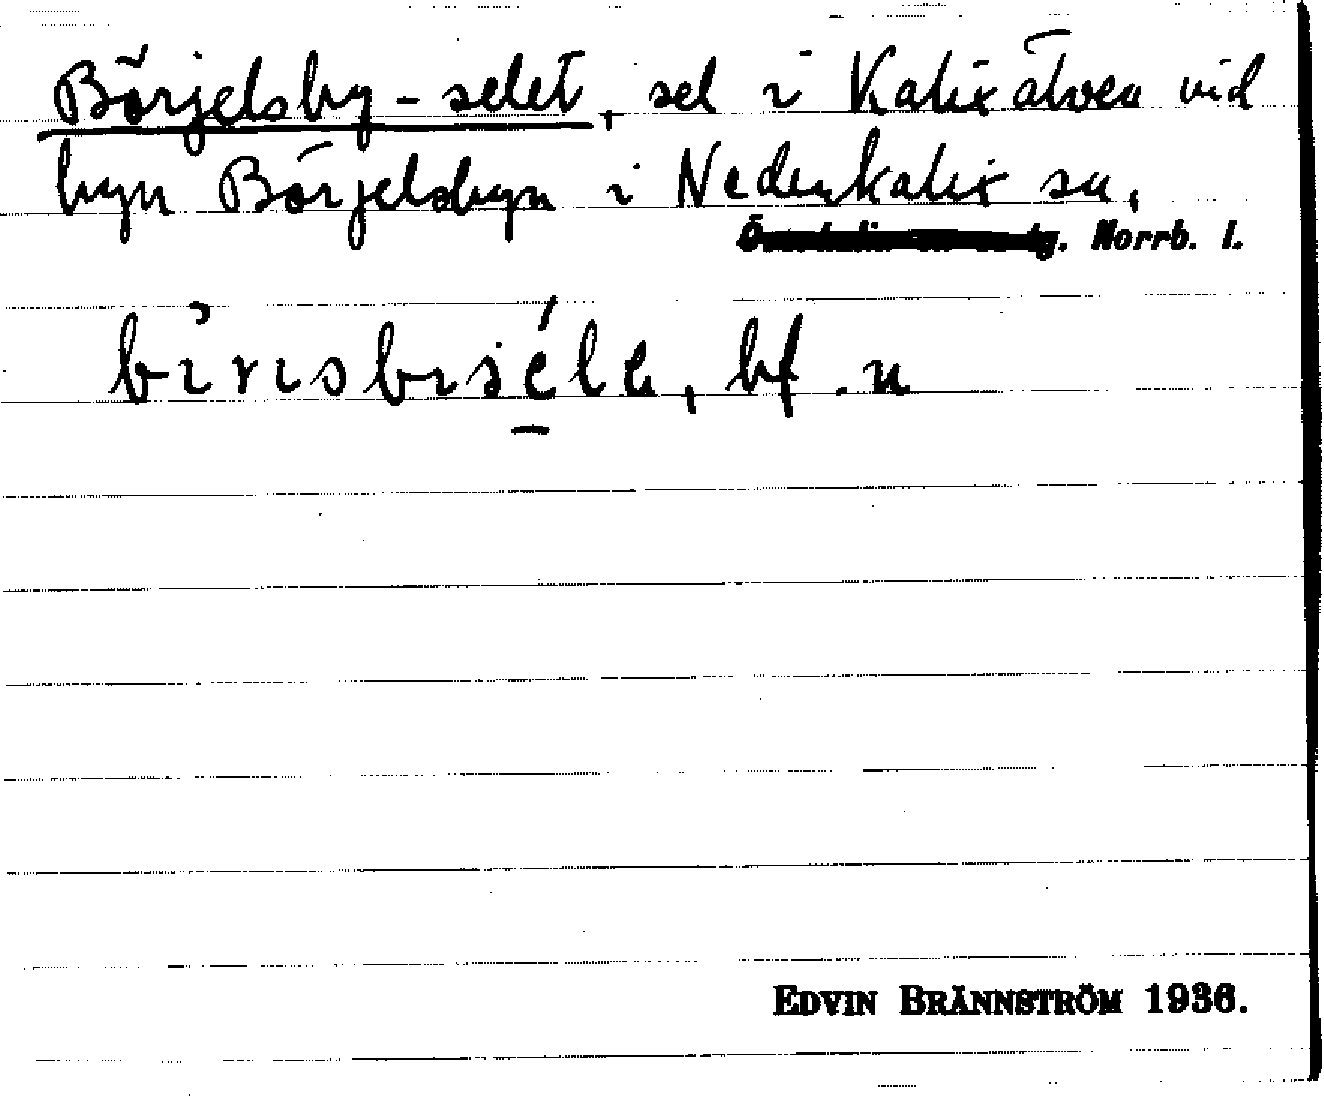 Börjelsby-selet, sel i Kalixälven vid
byn Börjelsbyn i Nederkalix sn,
Norrb. l.
bf. n
EDVIN BRÄNNSTRÖM 1936.